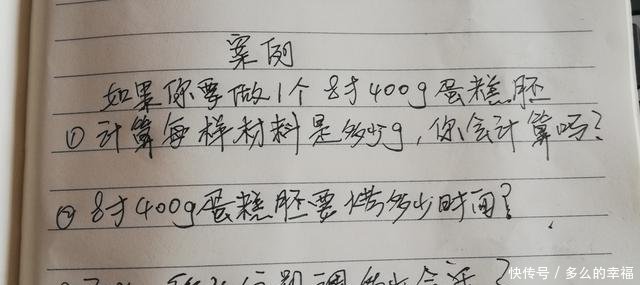 案例
如果你要做1个8寸400g蛋糕胚
①计算每样材料是多少g,你会计算吗?
②8寸400g蛋糕胚要烤多少时间?
快传号 / 多么的幸福